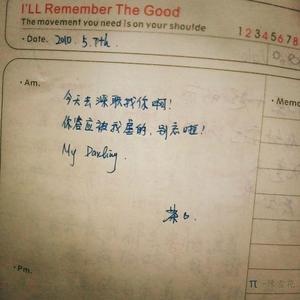 I'LL Remember The Good
The movement you need is on your shoulde
1 2 3 4 5 6 7 8
· Date. 2010. 5. 7th.
· Am.
· Memo
今天去深职找你啊!
你答应被我虐的,别忘啦!
My Darling.
· Pm.
π